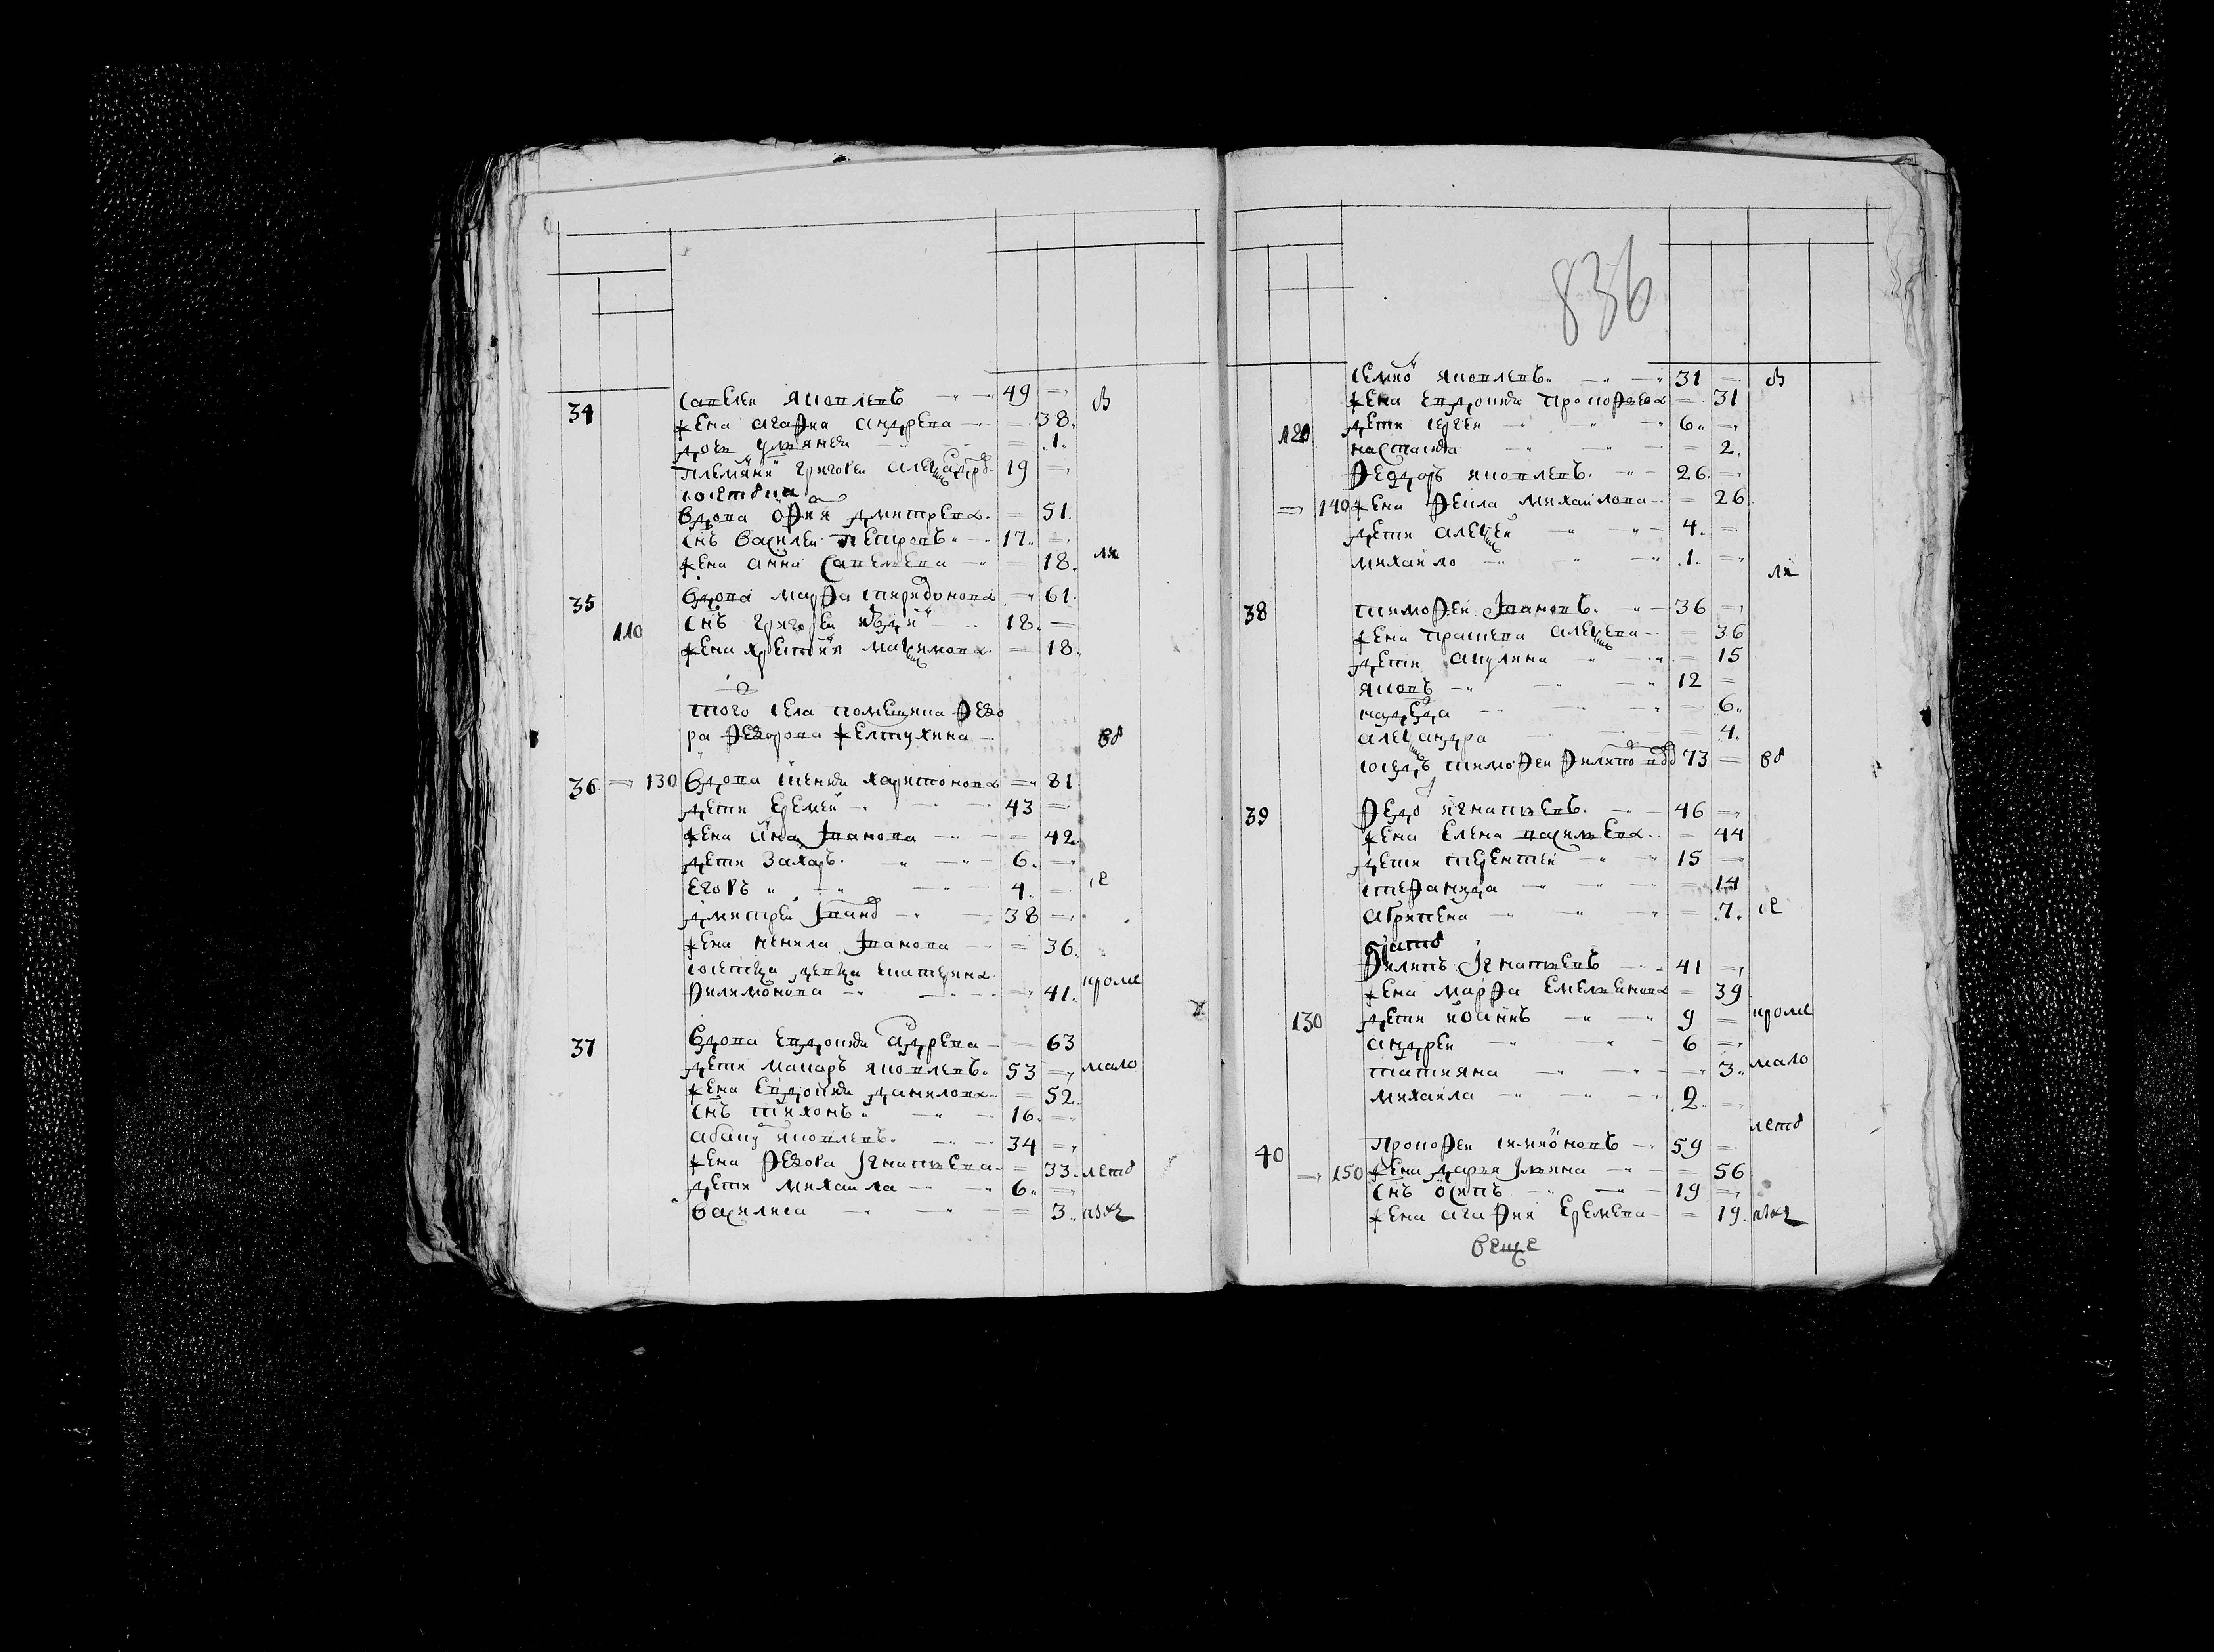 34 Савелей Яковлевъ 49
жена Агафия Андреева 38
дочь Ульяния 1
племяни Григорей Александро 19
вдова Офия Дмитрева 51
снъ Василей Петровъ 17
жена Анна Савельева 18
35 вдова Марфа Спиридонова 61
снъ Григорей 18
110
жена Христиня Максимова 18
того села помещика Федо
ра Федорова Желтухина
36 130 вдова Ксения Харитонова 81
дети Еремей 43
жена Анна Иванова 42
дети Захаръ 6
Егоръ 4
Дмитрей Ивано 38
жена Ненила Иванова 36
девка Екатерина
Филимонова 41
37 вдова Евдокия Адреева 63
дети Макаръ Яковлевъ 53
жена Евдокия Данилова 52
снъ Тихонъ 16
Абаку Яковлевъ 34
жена Федора Игнатьева 33
дети Михайла 6
Василиса 3
в
ли
бы
се
кроме
мало
лето
836
Семио Яковлевъ 31
жена Евдокия Прокофьева 31
дети Сергеи 6
120
Настасия 2
Федоръ Яковлевъ 26
140 жена Фекла Михайлова 26
дети Алексей 4
Михайло 1
38 Тимофеи Ивановъ 36
жена Прасковя Алексеева 36
дети Акулина 15
Яковъ 12
Надежда 6
Александра 4
соседъ Тимофеи Филипо 73
39 Федо Игнатьевъ 46
жена Елена Васильева 44
дети Терентей 15
Стефанида 14
Агрипена 7
брато
Филипъ Игнатьевъ 41
жена Марфа Емельянова 39
130 дети Иоаннъ 9
Андреи 6
Татияна 3
Михайла 2
40 Прокофеи Симионовъ 59
150 жена Дарья Ильина 56
снъ Осипъ 19
жена Агафия Еремева 19
в
ли
бы
се
кроме
мало
лето
веще